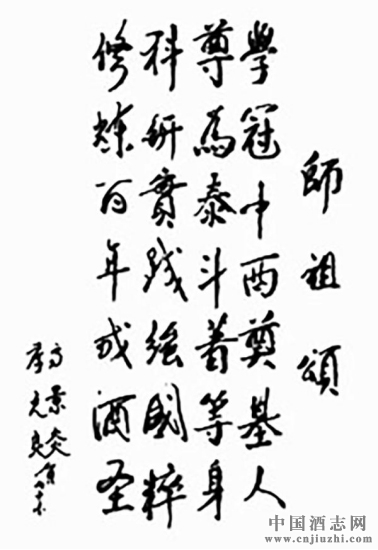 師祖頌
學冠中西奠基人
尊為泰斗著等身
科研實踐國粹
修煉百年成酒圣
高景炎
季克良
中国酒志网
www.cnjiuzhi.com